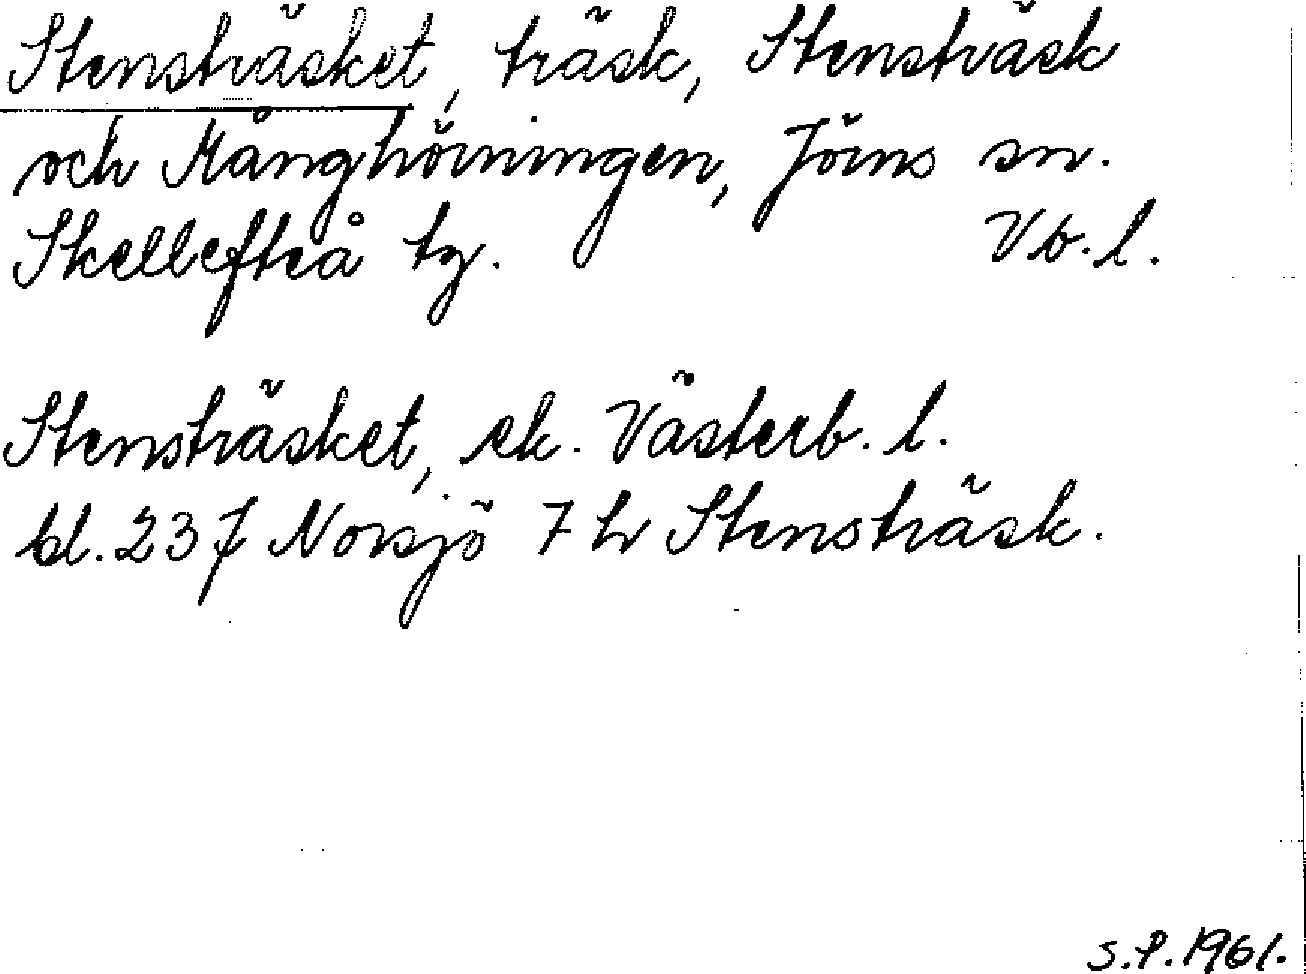 Stensträsket, träsk, Stensträsk
och Månghörningen, Jörns sn.
Skellefteå tg. Vb.l.
Stensträsket, ek. Västerb. l.
bl. 237 Norsjö 7 h Stensträsk.
S.P. 1961.